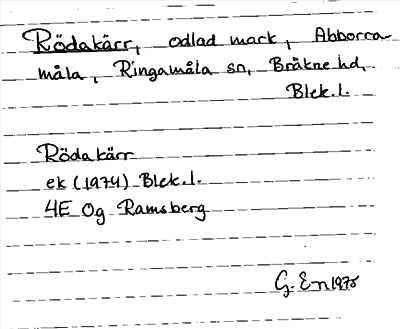 Rödakärr, odlad mark, Abborra-
måla, Ringamåla sn, Bräkne hd,
Blek.l.
Rödakärr
ek (1974) Blek.l.
4E 0g Ramsberg
G. En 1975